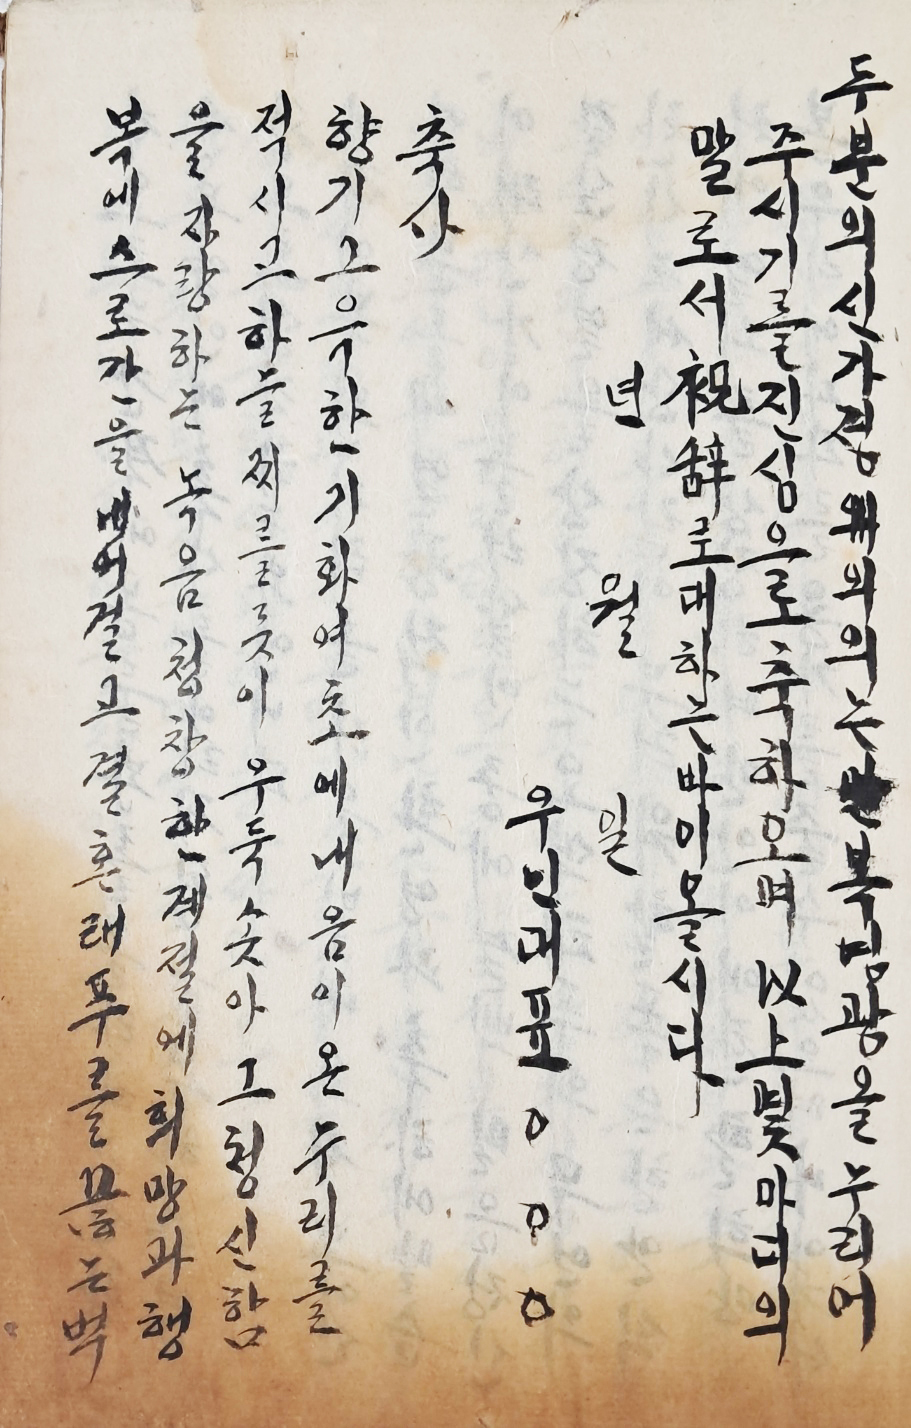 두분의신가정 위의는 복딤광을누리어
주시기를진심으로축하오며 以上몇마디의
말로서祝辞로대하는바이올시다
년 월 일
우인대표 ○ ○ ○
축사
향기그윽한기화여초에내음이온누리를
적시고하늘찌를듯이우뚝솟아그청신함
을자랑하는 녹음청창한계절에희망과행
복에스로간을 고결혼래푸를뿜는벽